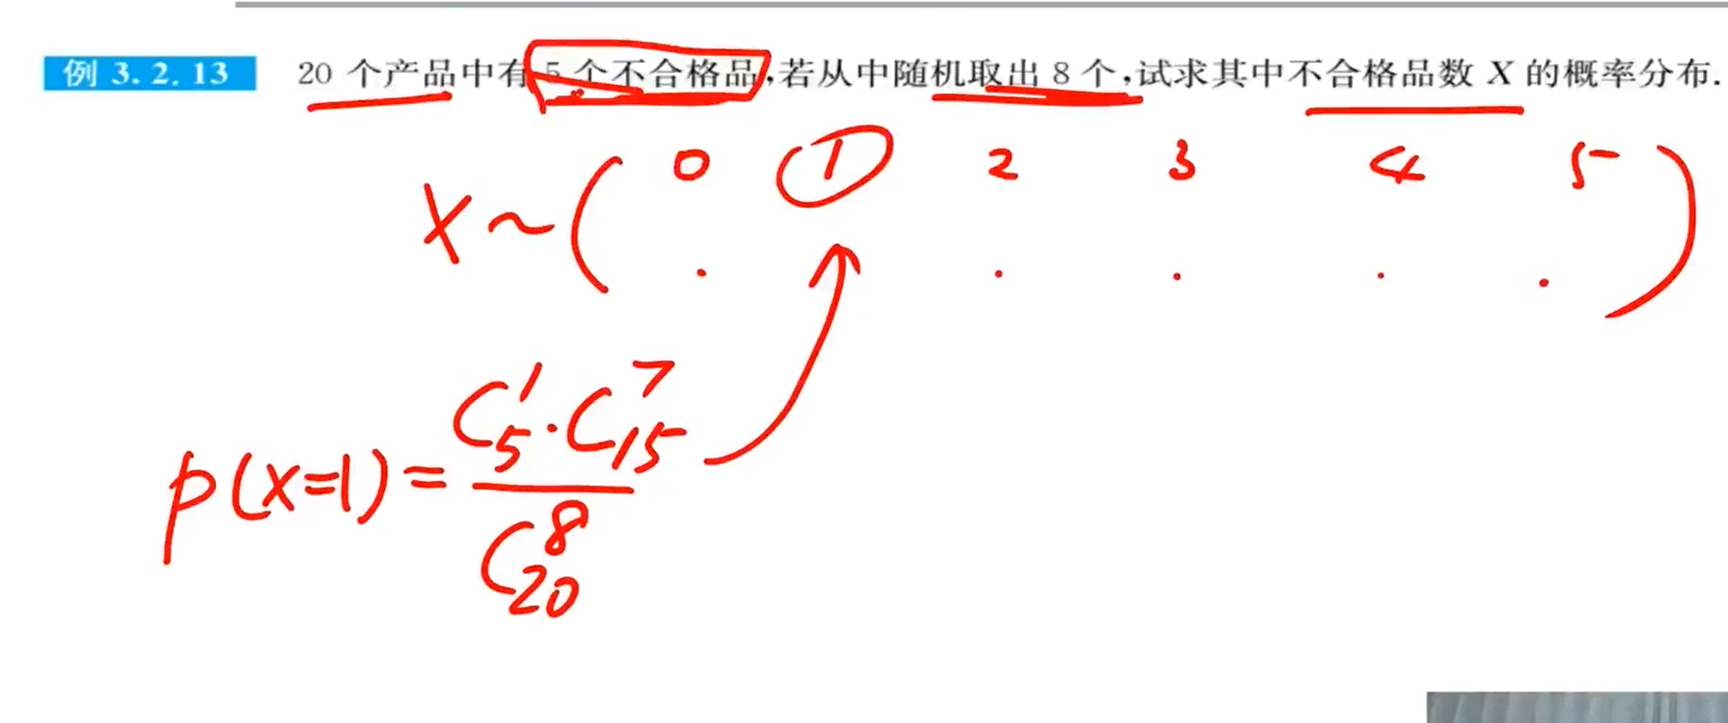 例 3.2.13 20 个产品中有 5 个不合格品,若从中随机取出 8 个,试求其中不合格品数 X 的概率分布.
0 1 2 3 4 5
X ~ ( )
C₅¹·C₁₅⁷
p(x=1) =
C₂₀⁸